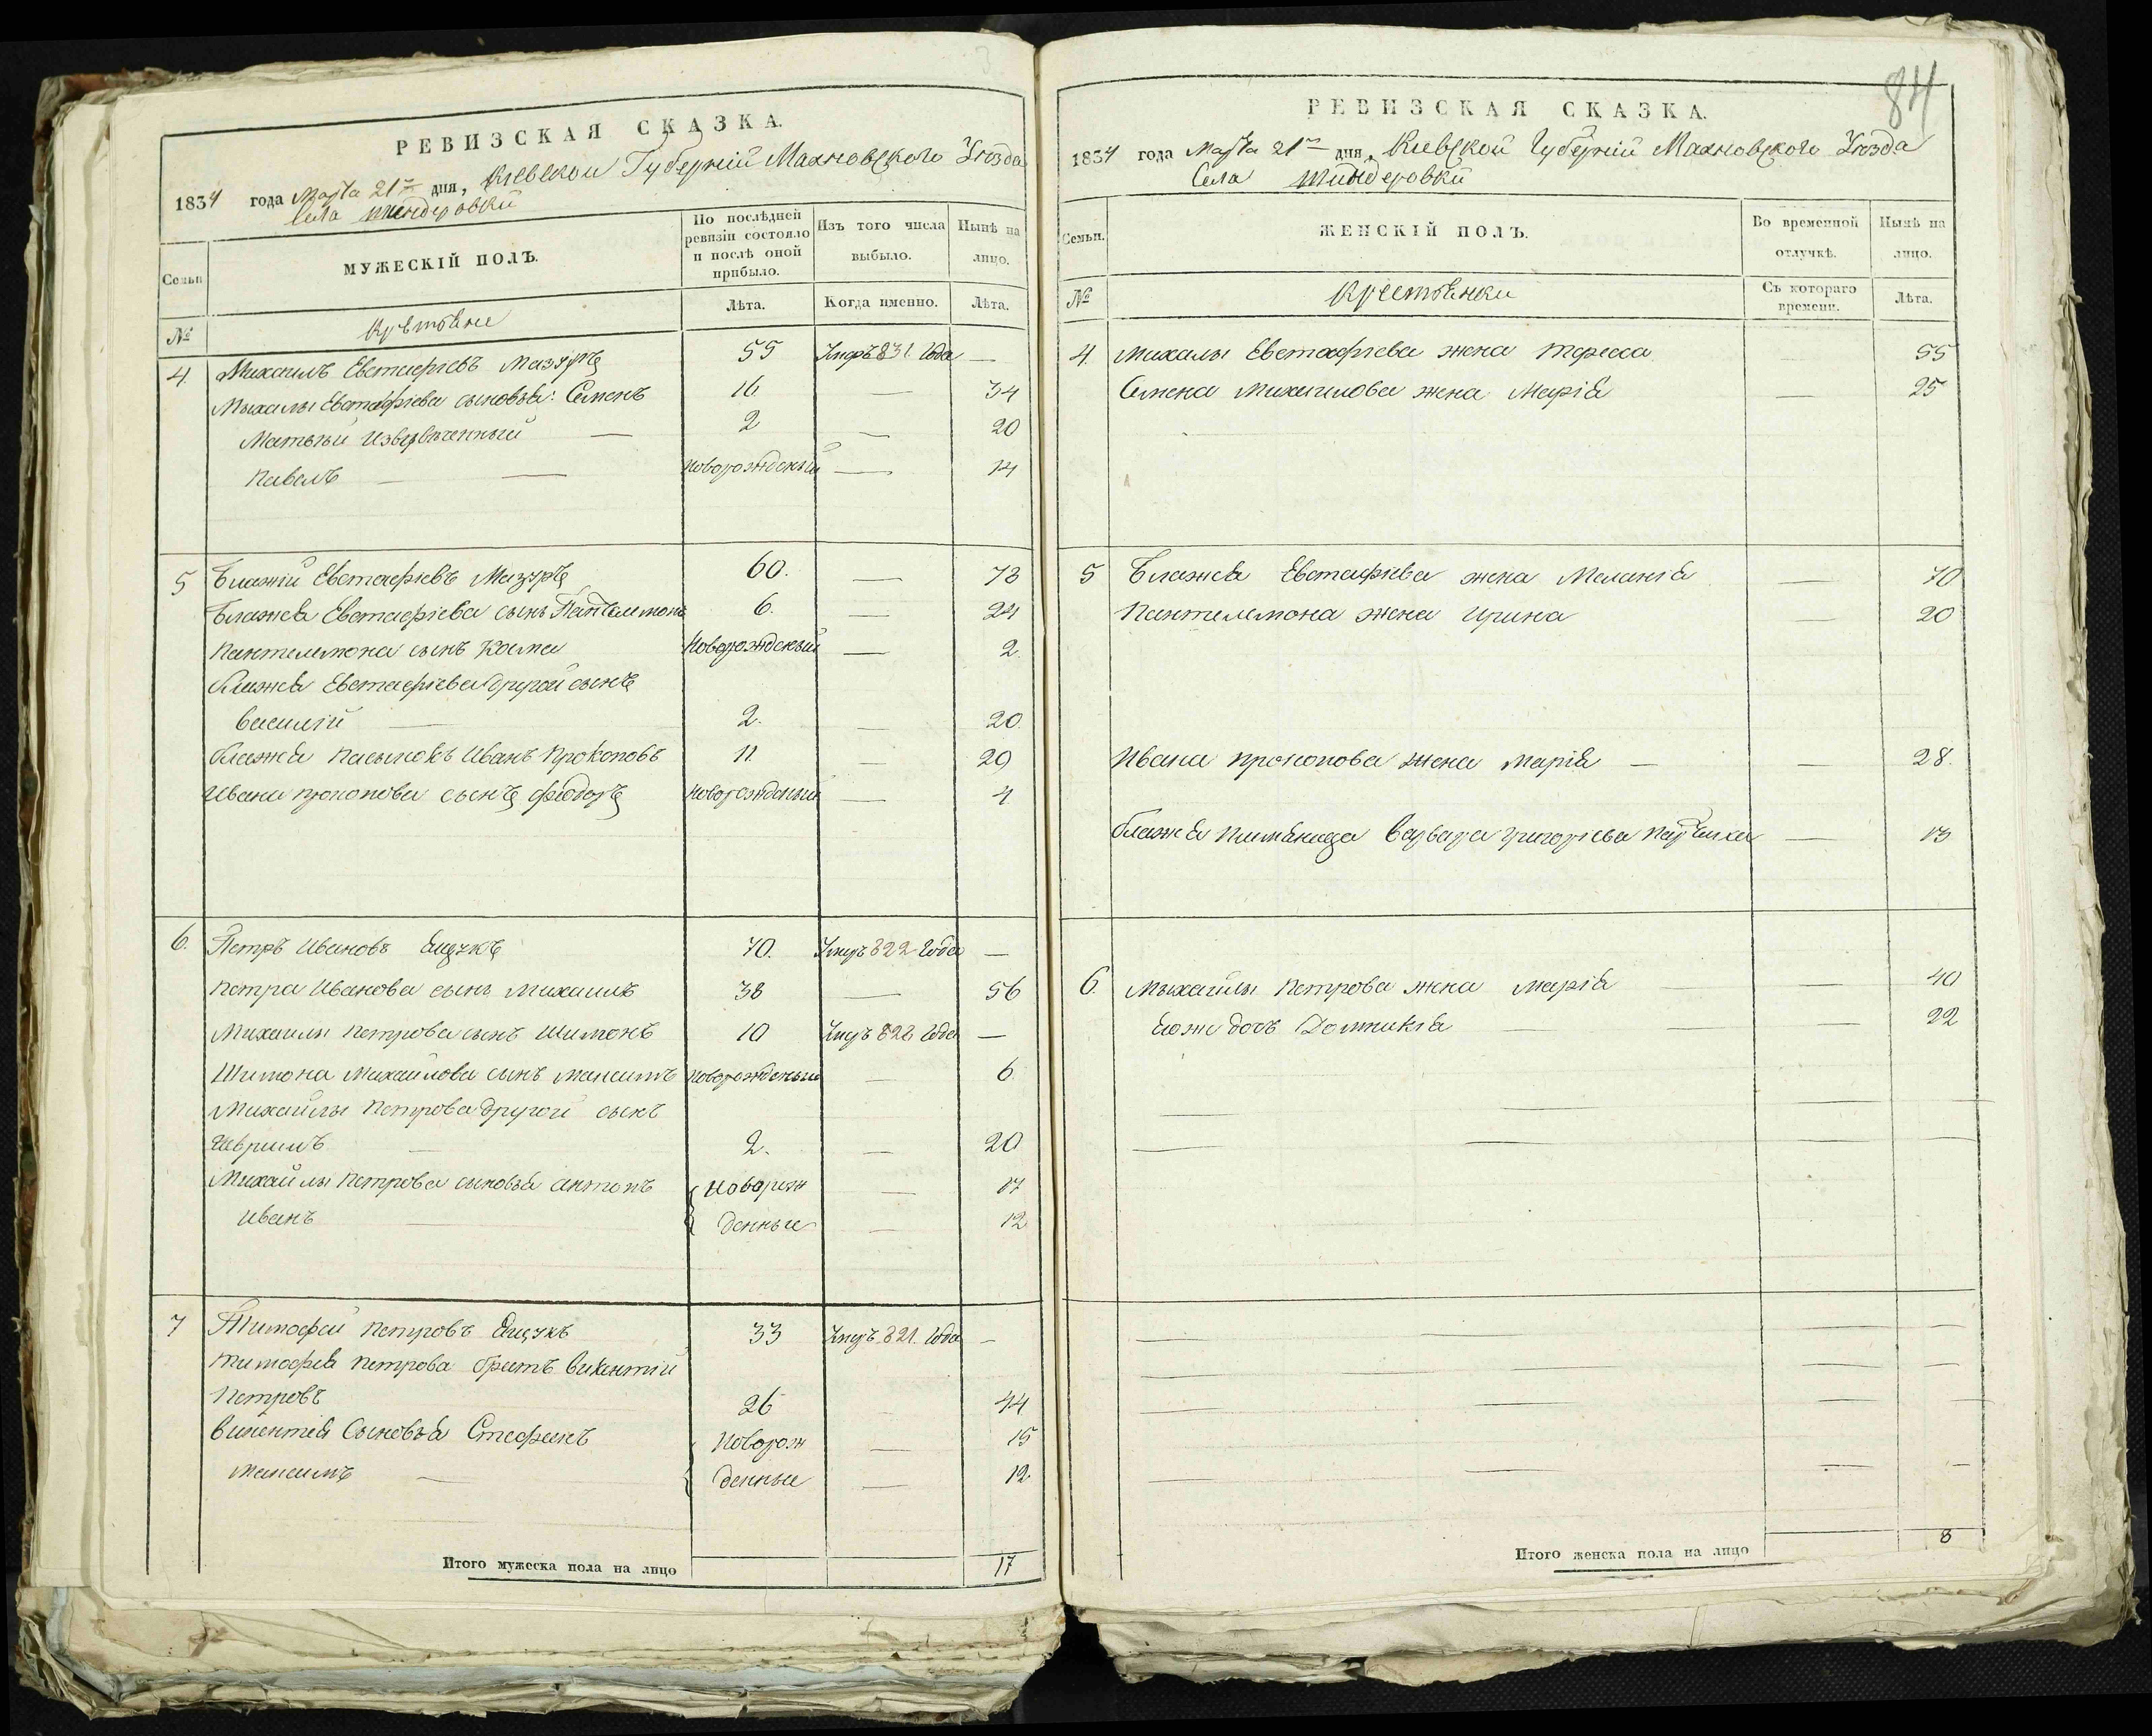 РЕВИЗСКАЯ СКАЗКА.
1834 года Марта 21го дня, Кіевской Губерніи Махновского Уѣзда
Села Шендеровки
Семьи
МУЖЕСКІЙ ПОЛЪ.
По послѣдней ревизіи состояло и послѣ оной прибыло.
Изъ того числа выбыло.
Нынѣ на лицо.
№
Крестьяне
Лѣта.
Когда именно.
Лѣта.
4. Михаилъ Евстафіевъ Мазуръ 55 Умеръ 831. Года —
Михаилы Евстафіева сыновья: Семенъ 16 — 34
Матвѣй — 2 — 20
Павелъ — — Новорожденый — 14
5 Блажій Евстафіевъ Мазуръ 60. — 73
Блажея Евстафіева сынъ Пантелемонъ 6. — 24
Пантелемона сынъ Косма Новорожденый — 2.
Блажея Евстафіева другой сынъ
Василій — 2. — 20.
Блажея пасынокъ Иванъ Прокоповъ 11. — 29
Ивана Прокопова сынъ Федоръ новорожденый — 4
6. Петръ Ивановъ Ящукъ 70. Умеръ 822 Года —
Петра Иванова сынъ Михаилъ 38 — 56
Михаилы Петрова сынъ Шимонъ 10 Умръ 828 Года —
Шимона Михайлова сынъ Максимъ новорожденый — 6.
Михайлы Петрова другой сынъ
— 2. — 20
Михайлы Петрова сыновья Антонъ Новорож — 17
Иванъ — денные — 12
7 Тимофей Петровъ Ящукъ 33 Умръ 821. Года —
Тимофея Петрова братъ Викентій
Петровъ 26 — 44
Викентія Сыновья Стефанъ Новорож — 15
Максимъ — денные — 12.
Итого мужеска пола на лицо 17
84
РЕВИЗСКАЯ СКАЗКА.
1834 года Марта 21го дня, Кіевской Губерніи Махновского Уѣзда
Села Шендеровки
Семьи.
ЖЕНСКІЙ ПОЛЪ.
Во временной отлучкѣ.
Нынѣ на лицо.
№
Крестьянки
Съ котораго времени.
Лѣта.
4. Михаилы Евстафіева жена Тереса — 55
Семена Михаилова жена Марія — 25
5 Блажея Евстафіева жена Меланія — 70
Пантелемона жена Ирина — 20
Ивана Прокопова жена Марія — — 28.
Блажея племяница Варвара Григорьева — 13
6. Михаилы Петрова жена Марія — — 40
его же дочь Домникія — — 22
Итого женска пола на лицо 8